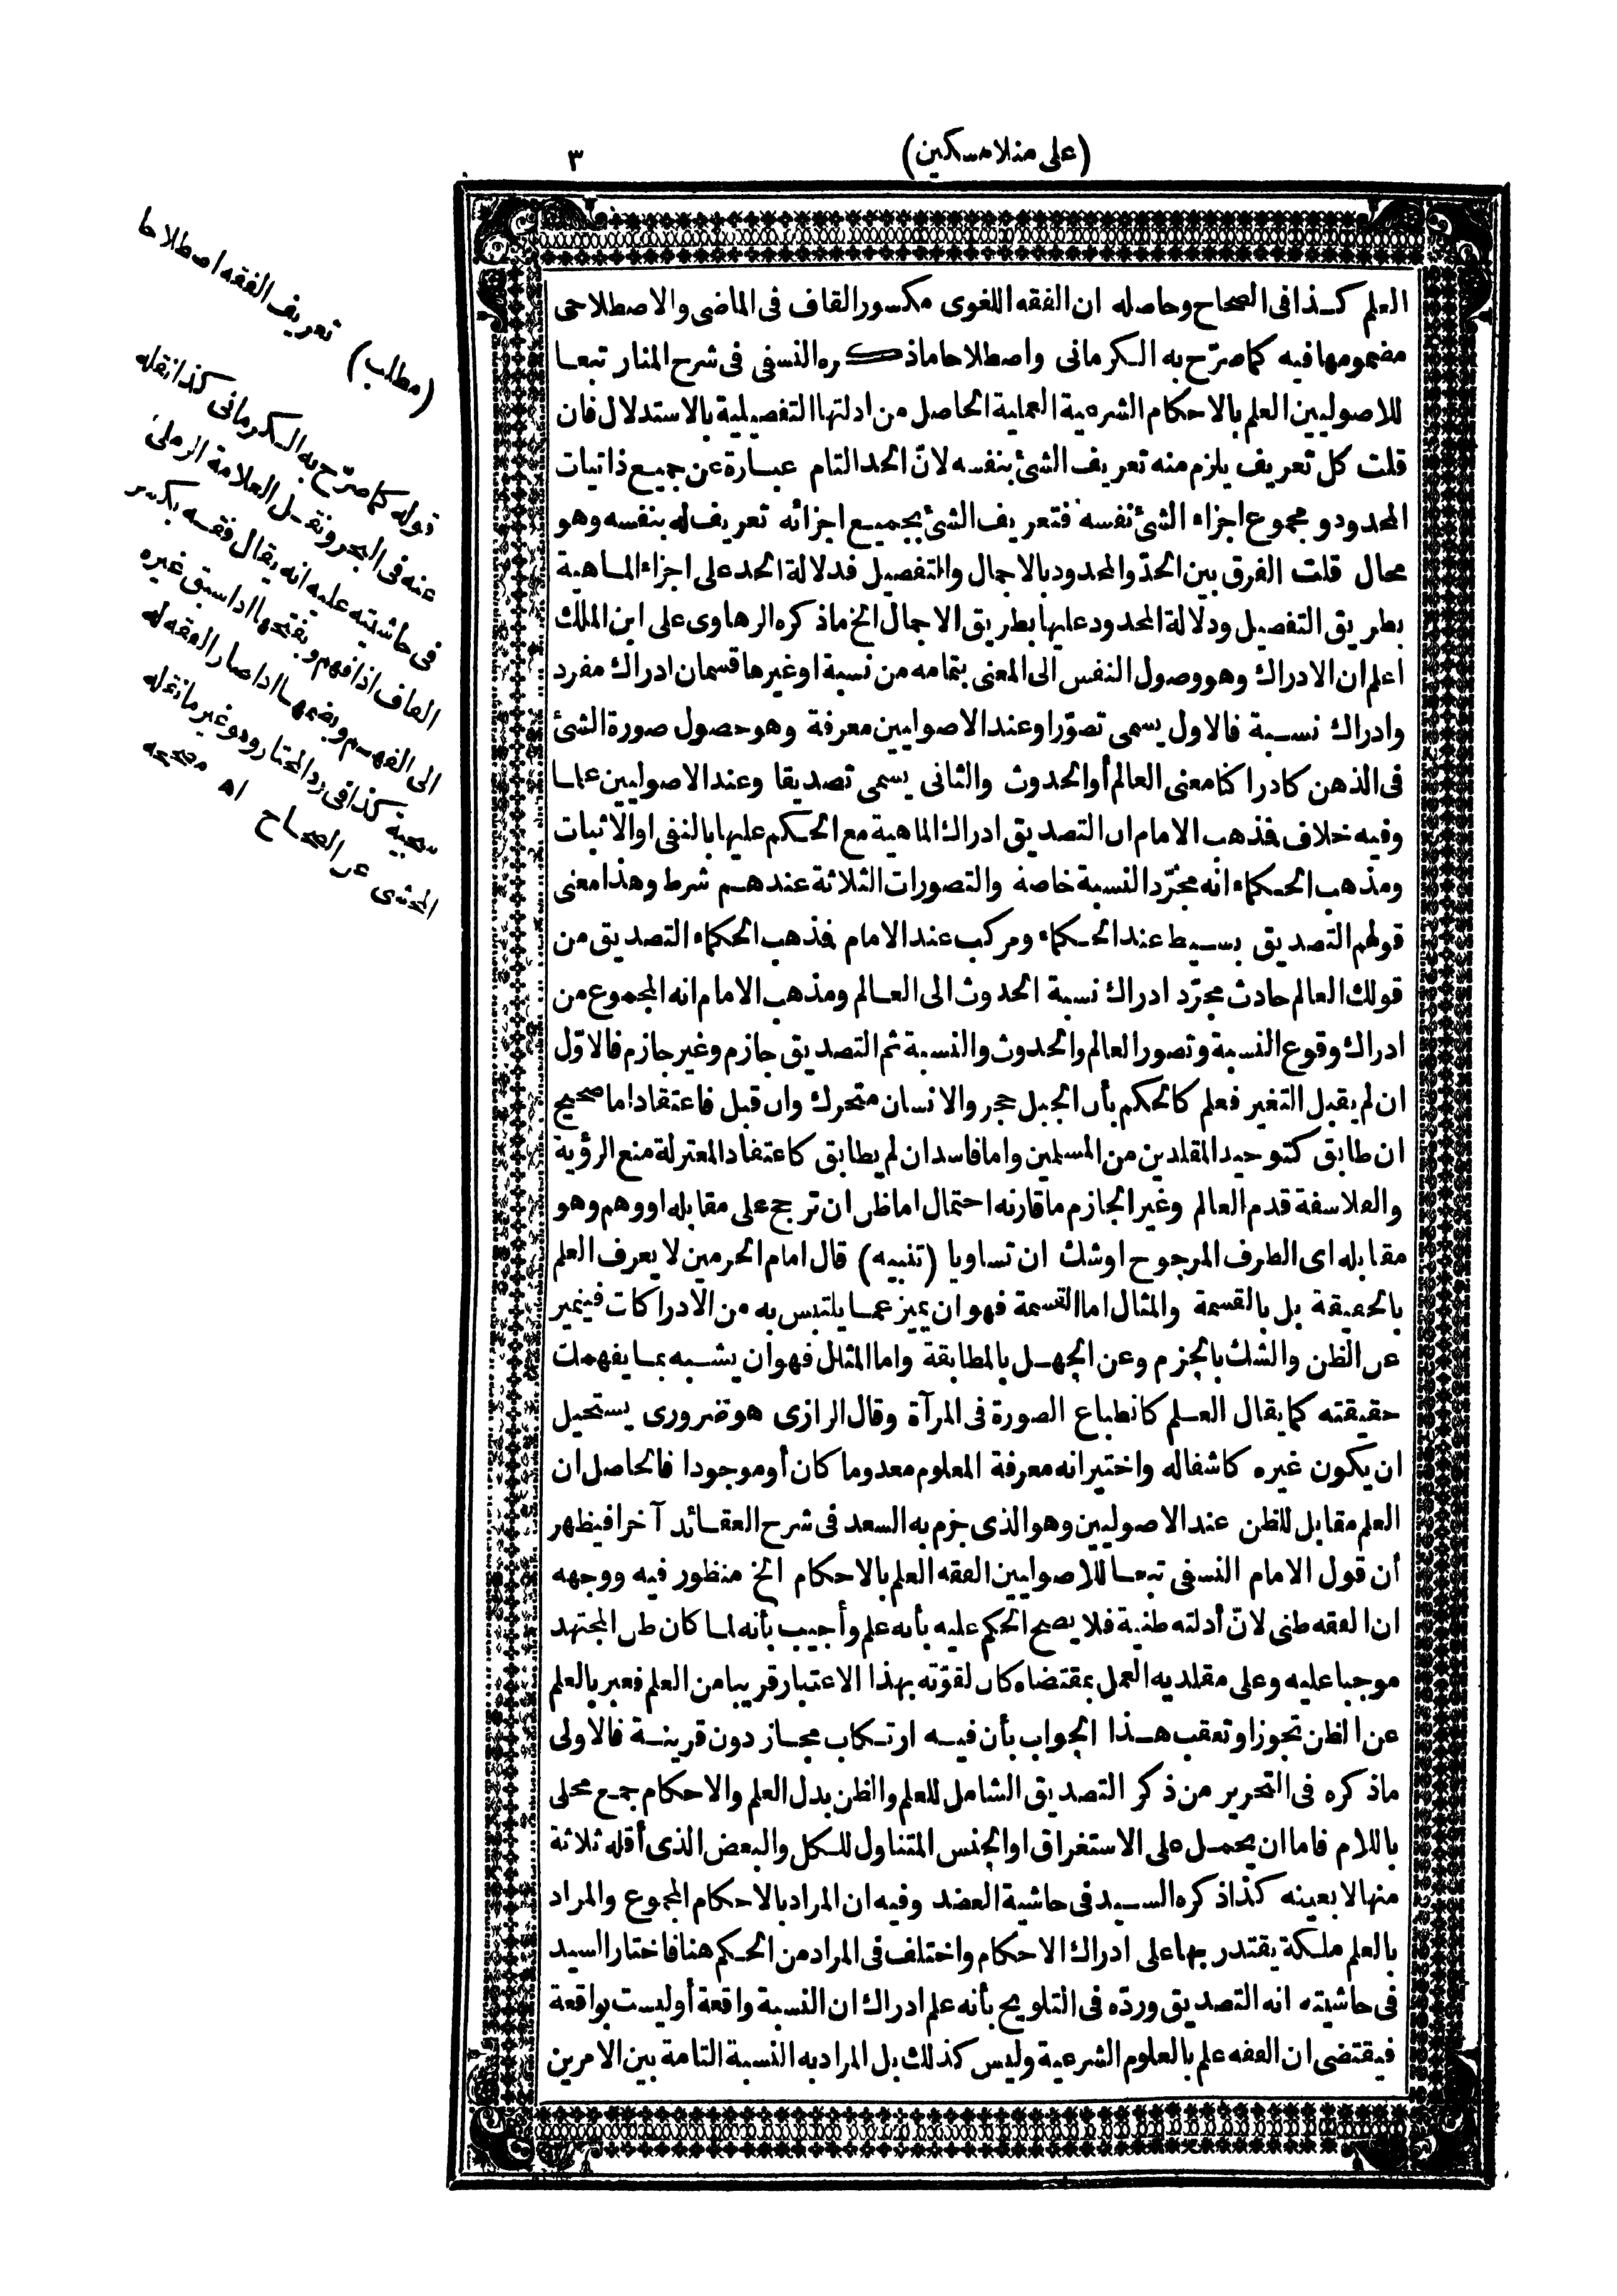 (على منلا مسكين)
٣
العلم كذا فى الصحاح وحاصله ان الفقه اللغوى مكسور القاف فى الماضى والاصطلاحى
مضمومها فيه كما صرّح به الكرمانى واصطلاحا ماذكره النسفى فى شرح المنار تبعا
للاصوليين العلم بالاحكام الشرعية العملية الحاصل من ادلتها التفصيلية بالاستدلال فان
قلت كل تعريف يلزم منه تعريف الشئ بنفسه لانّ الحد التام عبارة عن جميع ذاتيات
المحدود و مجموع اجزاء الشئ نفسه فتعريف الشئ بجميع اجزائه تعريف له بنفسه وهو
محال قلت الفرق بين الحدّ والمحدود بالاجمال والتفصيل فدلالة الحد على اجزاء الماهية
بطريق التفصيل ودلالة المحدود عليها بطريق الاجمال الخ ماذكره الرهاوى على ابن الملك
اعلم ان الادراك وهو وصول النفس الى المعنى بتمامه من نسبة اوغيرها قسمان ادراك مفرد
وادراك نسبة فالاول يسمى تصوّرا وعند الاصوليين معرفة وهو حصول صورة الشئ
فى الذهن كادراكنا معنى العالم أو الحدوث والثانى يسمى تصديقا وعند الاصوليين علما
وفيه خلاف فذهب الامام ان التصديق ادراك الماهية مع الحكم عليها بالنفى او الاثبات
ومذهب الحكماء انه مجرّد النسبة خاصة والتصورات الثلاثة عندهم شرط وهذا معنى
قولهم التصديق بسيط عند الحكماء ومركب عند الامام فمذهب الحكماء التصديق من
قولك العالم حادث مجرّد ادراك نسبة الحدوث الى العالم ومذهب الامام انه المجموع من
ادراك وقوع النسبة وتصور العالم والحدوث والنسبة ثم التصديق جازم وغير جازم فالاوّل
ان لم يقبل التغير فعلم كالحكم بأن الجبل حجر والانسان متحرك وان قبل فاعتقاد اما صحيح
ان طابق كتوحيد المقلدين من المسلمين واما فاسد ان لم يطابق كاعتقاد المعتزلة منع الرؤية
والفلاسفة قدم العالم وغير الجازم ماقارنه احتمال اما ظن ان ترجح على مقابله او وهم وهو
مقابله اى الطرف المرجوح اوشك ان تساويا (تنبيه) قال امام الحرمين لا يعرف العلم
بالحقيقة بل بالقسمة والمثال اما القسمة فهو ان يميز عما يلتبس به من الادراكات فيتميز
عن الظن والشك بالجزم وعن الجهل بالمطابقة واما المثال فهو ان يشبه بما يفهمك
حقيقته كما يقال العلم كانطباع الصورة فى المرآة وقال الرازى هو ضرورى يستحيل
ان يكون غيره كاشفا له واختير انه معرفة المعلوم معدوما كان أو موجودا فالحاصل ان
العلم مقابل للظن عند الاصوليين وهو الذى جزم به السعد فى شرح العقائد آخرا فيظهر
أن قول الامام النسفى تبعا للاصوليين الفقه العلم بالاحكام الخ منظور فيه ووجهه
ان الفقه ظنى لانّ أدلته ظنية فلا يصح الحكم عليه بأنه علم وأجيب بأنه لما كان ظن المجتهد
موجبا عليه وعلى مقلديه العمل بمقتضاه كان لقوّته بهذا الاعتبار قريبا من العلم فعبر بالعلم
عن الظن تجوزا وتعقب هذا الجواب بأن فيه ارتكاب مجاز دون قرينة فالاولى
ماذكره فى التحرير من ذكر التصديق الشامل للعلم والظن بدل العلم والاحكام جمع محلى
باللام فاما ان يحمل على الاستغراق او الجنس المتناول للكل والبعض الذى أقله ثلاثة
منها لا بعينه كذا ذكره السيد فى حاشية العضد وفيه ان المراد بالاحكام المجموع والمراد
بالعلم ملكة يقتدر بها على ادراك الاحكام واختلف فى المراد من الحكم هنا فاختار السيد
فى حاشيته انه التصديق وردّه فى التلويح بأنه علم ادراك ان النسبة واقعة أوليست بواقعة
فيقتضى ان الفقه علم بالعلوم الشرعية وليس كذلك بل المراد به النسبة التامة بين الامرين
(مطلب) تعريف الفقه اصطلاحا
قوله كما صرّح به الكرمانى كذا نقله
عنه فى البحر ونقل العلامة الرملى
فى حاشيته عليه انه يقال فقه بكسر
القاف اذا فهم وبفتحها اذا سبق غيره
الى الفهم وبضمها اذا صار الفقه له
سجية كذا فى رد المحتار وهو غير ما نقله
المحشى عن الصحاح اه مصححه